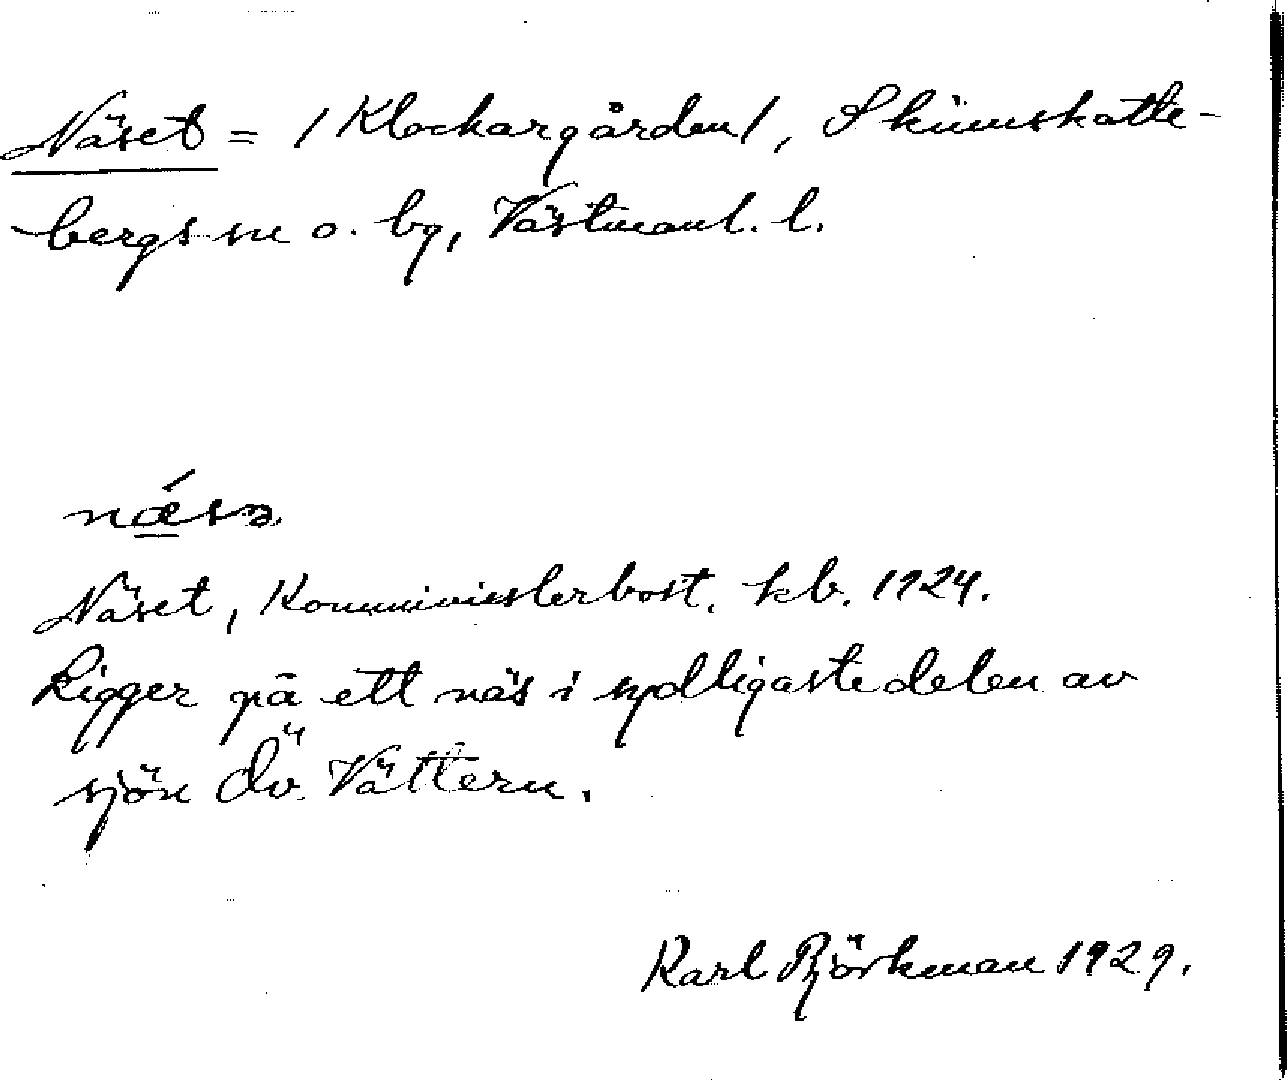 Näset = / Klockargården /, Skinnskatte-
bergs sn o. by, Västmanl. l.
næ´sə.
Näset, Komministerbost. kb. 1924.
Ligger på ett näs i sydligaste delen av
sjön Öv. Vättern.
Karl Björkman 1929.